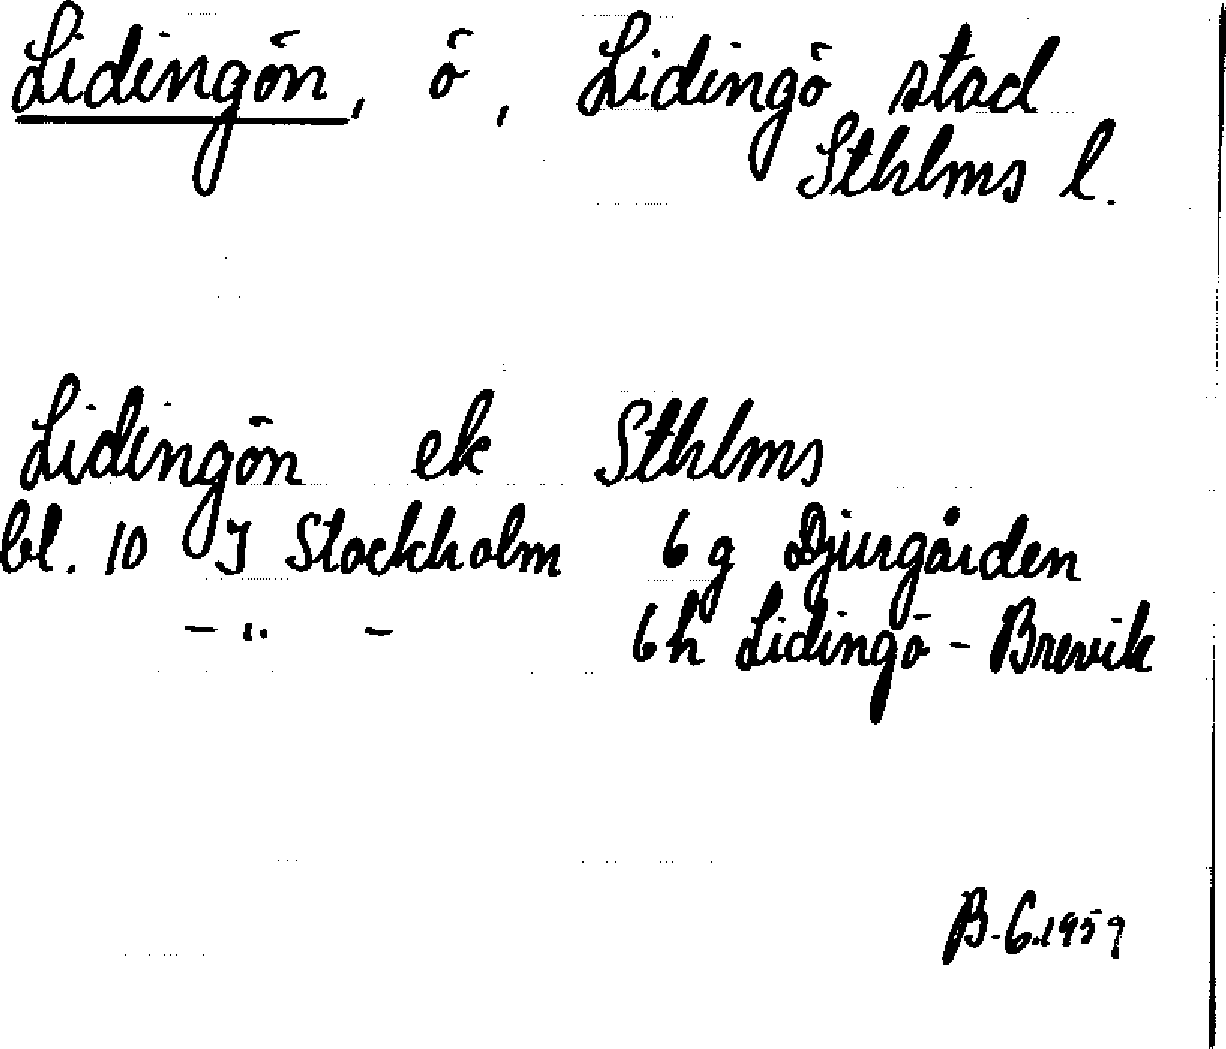 Lidingön, ö, Lidingö stad
Sthlms l.
Lidingön ek Sthlms
bl. 10 I Stockholm 6 g Djurgården
- " - 6h Lidingö - Brevik
B.G.1959